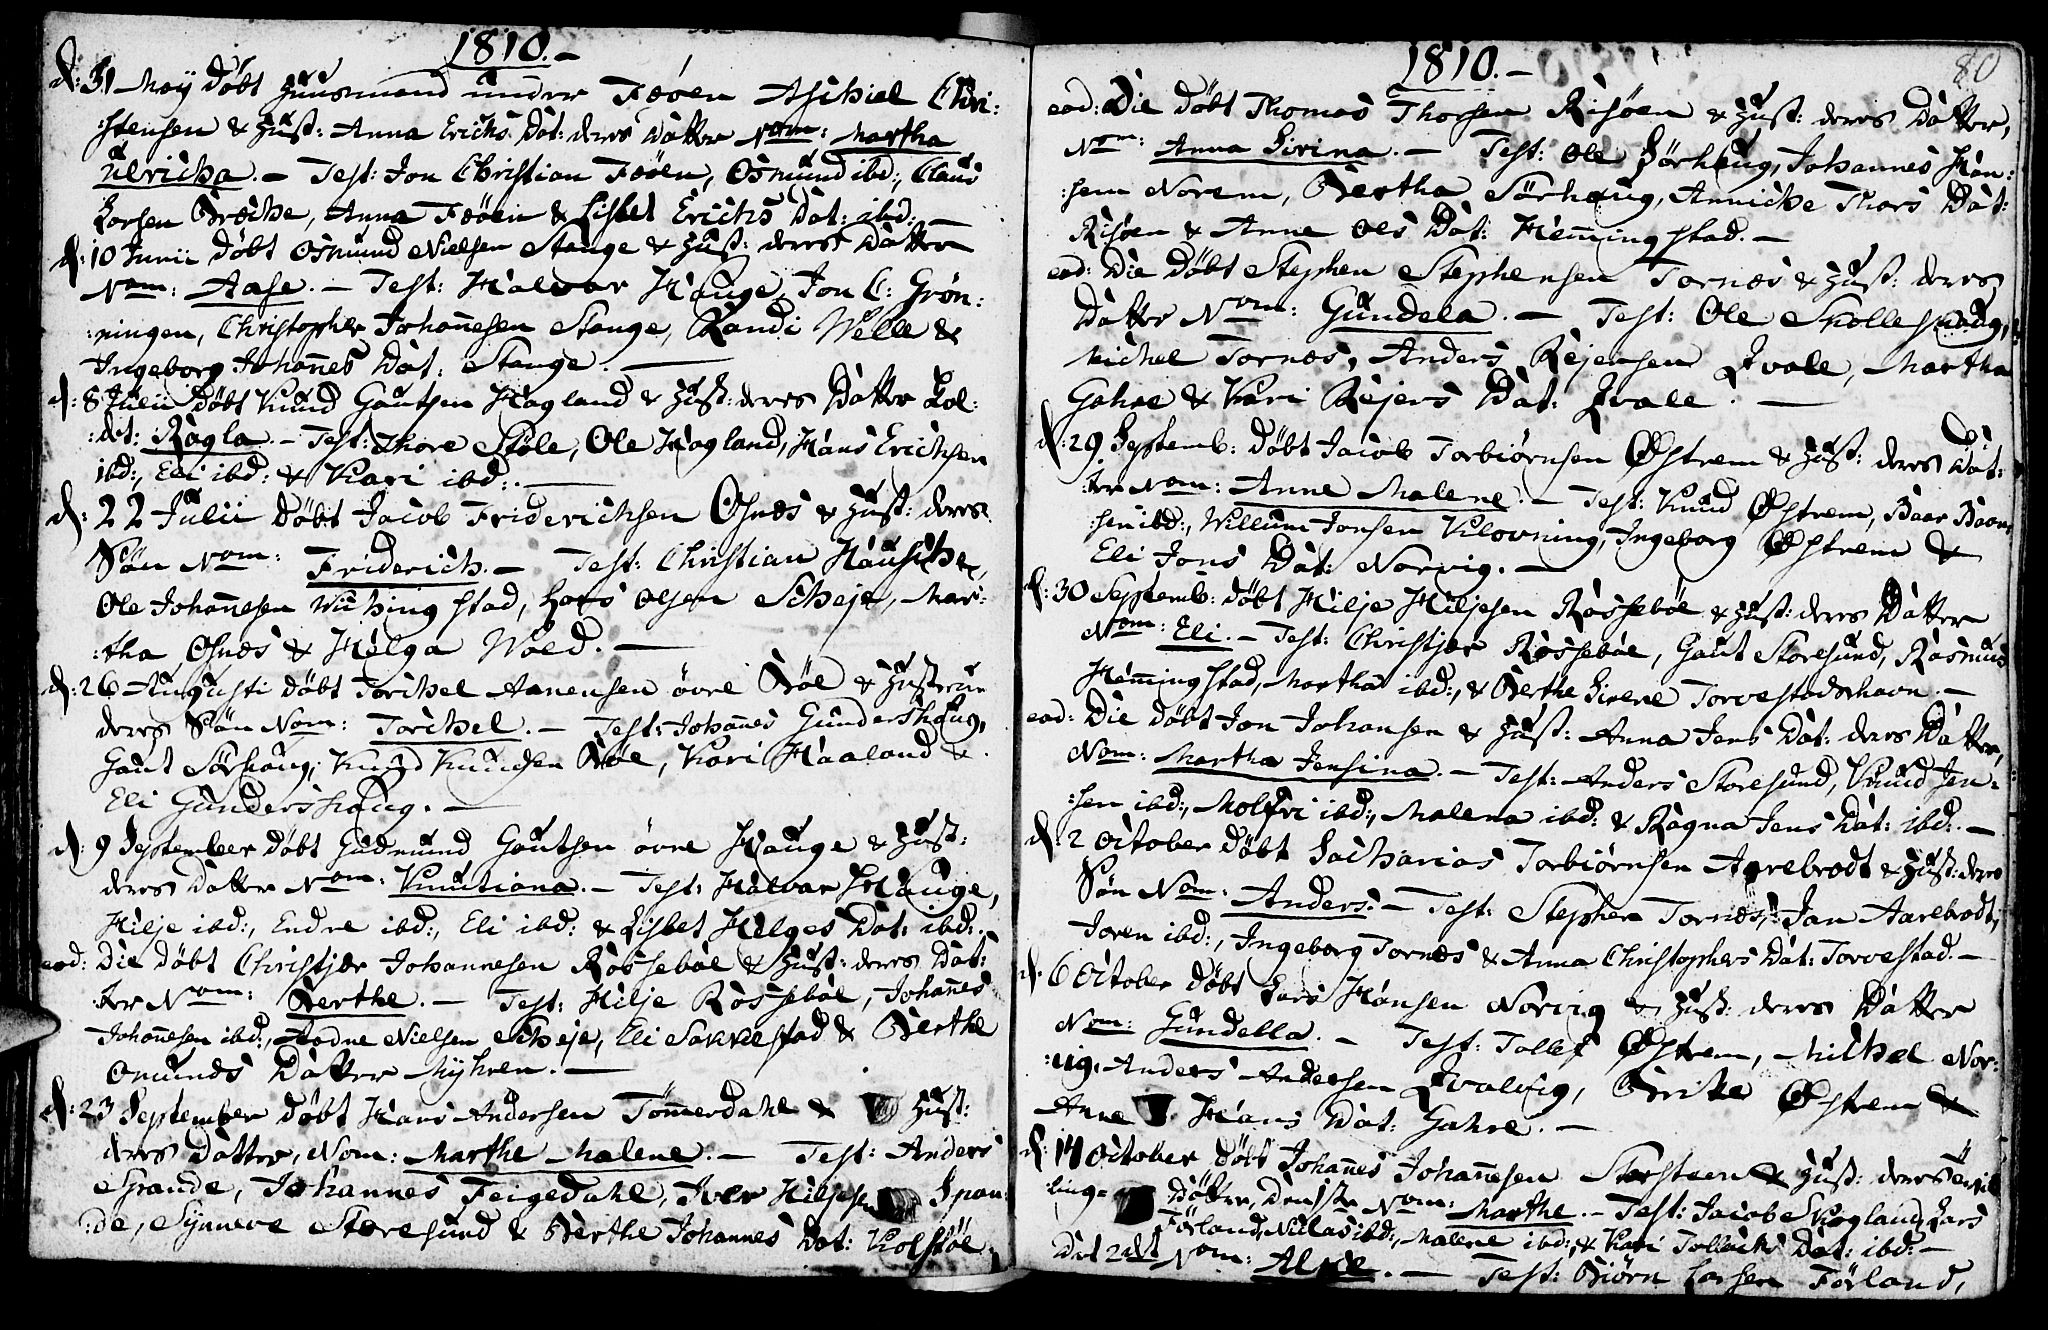 1810.-
d: 31 Maÿ döbt Huusmand under Feöen Aschiel Chri:
:stensen & Hust: Anna Erichs Dat: deres Datter Nom: Martha
Ulricha. - Test: Jon Christian Feöen, Osmund ibd:, Claus
Larsen Breche, Anna Feöen & Lisbet Erichs Dat: ibd: -
d: 10 Junii döbt Osmund Nielsen Stange & Hust: deres Datter
Nom: Aase. - Test: Halvor Hauge, Jon C: Grön:
:ningen, Christopher Johañesen Stange, Randi Welle &
Ingeborg Johañes Dat: Stange. -
d: 8 Julii döbt Knud Gautsen Hagland & Hust: deres Datter kal:
:det: Ragla. - Test: Thore Stöle, Ole Hagland, Hans Erichsen
ibd:, Eli ibd: & Kari ibd:. -
d: 22 Julii döbt Jacob Friderichsen Osnes & Hust: deres
Sön Nom: Friderich. - Test: Christian Hauske,
Ole Johañesen Wichingstad, Lars Olsen Scheje, Mar:
:tha Osnes & Helga Wold. -
d: 26 Augusti döbt Torchel Aanensen övre Böe & Hustrue
deres Sön Nom: Torchel. - Test: Johañes Gundershaug,
Gaut Sörhaug, Knud Knudsen Böe, Kari Haaland &
Eli Gundershaug. -
d: 9 September döbt Gudmund Gautsen övre Hauge & Hust:
deres Datter Nom: Knutiana. - Test: Halvor Hauge,
Hilje ibd:, Endre ibd:, Eli ibd: & Lisbet Helges Dat: ibd:.
eod: Die döbt Christjer Johannesen Rosseböe & Hust: deres Dat:
:ter Nom: Berthe. - Test: Hilje Rosseböe, Johañes
Johañesen ibd:, Aadne Nielsen Scheje, Eli Sakkestad & Berthe
Omunds Datter Mÿhren. -
d: 23 September döbt Hans Andersen Töm̃erdahl & Hust:
deres Datter, Nom: Marthe Malene. - Test: Anders
Spande, Johannes Feigedahl, Iver Hiljesen Span:
:de, Synneve Storesund & Berthe Johannes Dat: Kolstöe.
1810.-
80
eod: Die döbt Thomas Thorsen Risöen & Hust: deres Datter,
Nom: Anna Sirina. - Test: Ole Sörhaug, Johannes Han:
:sen Norem, Bertha Sörhaug, Annicke Thors Dat:
Risöen & Anne Ols Dat: Hem̃ingstad. -
eod: Die döbt Stephen Stephensen Tornes & Hust: deres
Datter Nom: Gundela. - Test: Ole Skolleskoug,
Michel Tornes, Anders Rejersen Qvale, Martha
Gahre & Kari Rejers Dat: Qvale. -
d: 29 Septemb: döbt Jacob Torbiörnsen Østrem & Hust: deres Dat:
:ter Nom: Anne Malene. - Test: Knud Østrem, Baar Baar:
:sen ibd:, Willum Jonsen Klovning, Ingeborg Østrem &
Eli Jons Dat: Norvig. -
d: 30 Septemb: döbt Hilje Hiljesen Rosseböe & Hust: deres Datter
Nom: Eli. - Test: Christjer Rosseböe, Gaut Storesund, Rasmus
Hem̃ingstad, Martha ibd:, & Berthe Sirene Torvestadshavn. -
eod: Die döbt Jon Johansen & Hust: Anna Jens Dat: deres Datter,
Nom: Martha Jensina. - Test: Anders Storesund, Knud Jen:
:sen ibd:, Molfri ibd:, Malena ibd: & Ragna Jens Dat: ibd:. -
d: 2 October döbt Sacharias Torbiörnsen Agrebrodt & Hust: deres
Sön Nom: Anders. - Test: Stephen Tornes, Jan Aarebrodt,
Joren ibd:, Ingeborg Tornes & Anna Christophers Dat: Torvestad. -
d: 6 October döbt Lars Hansen Norvig & Hust: deres Datter
Nom: Gundella. - Test: Tollef Østrem, Michel Nor:
:vig, Anders Andersen Qvalvig, Brite Østrem &
Anne Hans Dat: Gahre. -
d: 14 October döbt Johañes Johañesen Storsteen & Hust: deres tvil
ling= Döttre, den 1ste Nom: Marthe. - Test: Jacob Skogland, Lars
Förland, Niclas ibd:, Malene ibd:, & Kari Tollachs Dat: ibd: -
Det 2det Nom: Alice. - Test: Biörn Larsen Förland,